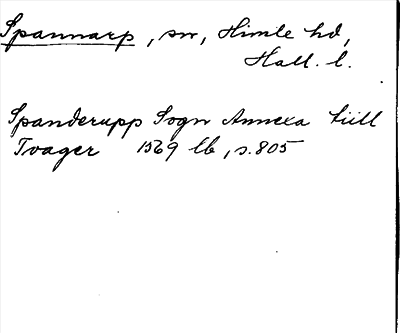 Spannarp, sn, Himle hd,
Hall. l.
Spanderupp Sogn Annexa till
Tvager 1569 lb, s. 805